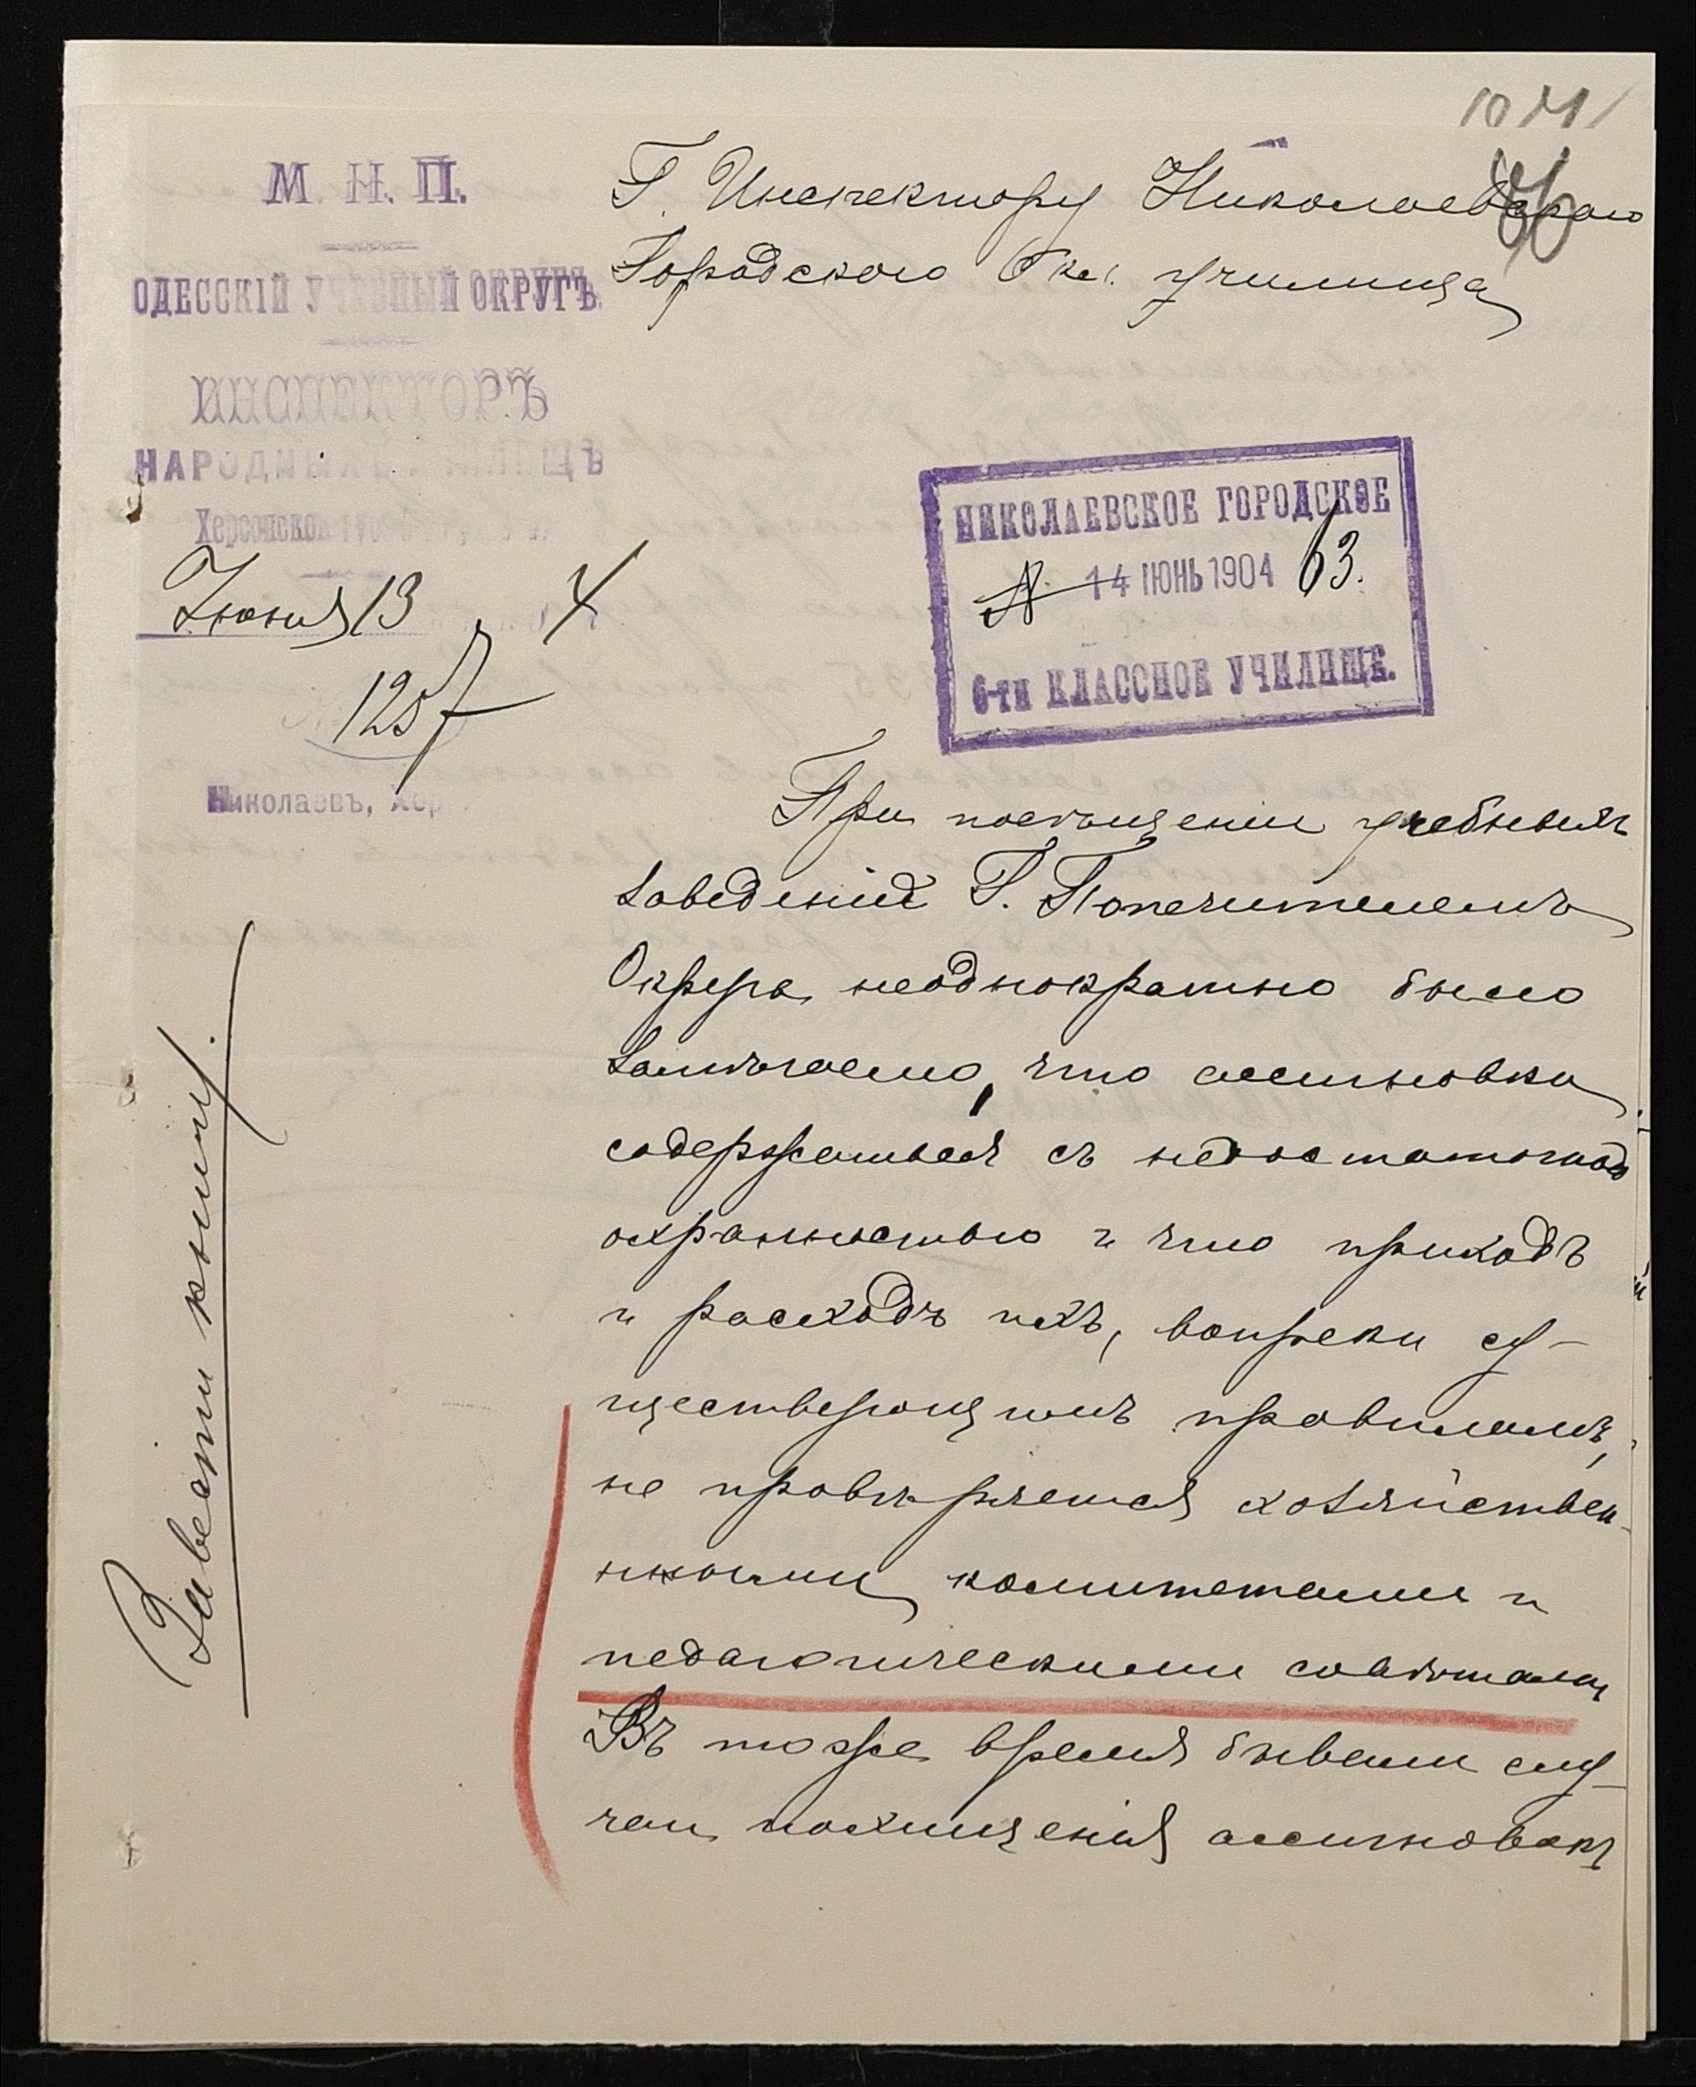 М. Н. П.
ОДЕССКІЙ УЧЕБНЫЙ ОКРУГЪ.
ИНСПЕКТОРЪ
НАРОДНЫХЪ УЧИЛИЩЪ
Херсонской
Іюня 13 4
1257
Николаевъ, Хер
Г. Инспектору Николаевскаго
Городского 6 кл. училища
НИКОЛАЕВСКОЕ ГОРОДСКОЕ
№ 14 ІЮНЬ 1904 63.
6-ти КЛАССНОЕ УЧИЛИЩЕ.
При посѣщеніи учебныхъ
заведеній Г. Попечителемъ
Округа неоднократно было
замѣчаемо, что ассигновки
содержатся съ недостаточной
охранностью и что приходъ
и расходъ ихъ, вопреки су-
ществующимъ правиламъ,
не провѣряется хозяйствен-
нными комитетами и
педагогическими совѣтами
Въ тоже время бывали слу-
чаи похищенія ассигновокъ
Завести книгу.